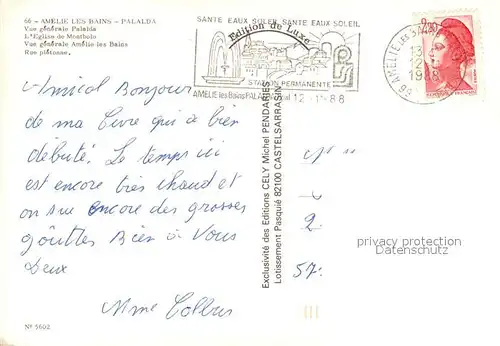 66 - AMÉLIE LES BAINS - PALALDA
Vue générale Palalda
L'Eglise de Montbolo
Vue générale Amélie les Bains
Rue piétonne.
SANTE EAUX SOLEIL SANTE EAUX SOLEIL
Edition de Luxe
STATION PERMANENTE
AMELIE les Bains PALALDA
12 - 1 - 88
66 AMELIE les
1988
2,20
Amical Bonjour
de ma Cure qui a bien
débuté. Le temps ici
est encore très chaud et
on sue encore des grosses
gouttes Bien à Vous
Deux
Mme
Exclusivité des Editions CELY Michel PENDARIES
Lotissement Pasquié 82100 CASTELSARRASIN
2
57
privacy protection
Datenschutz
Nº 5602